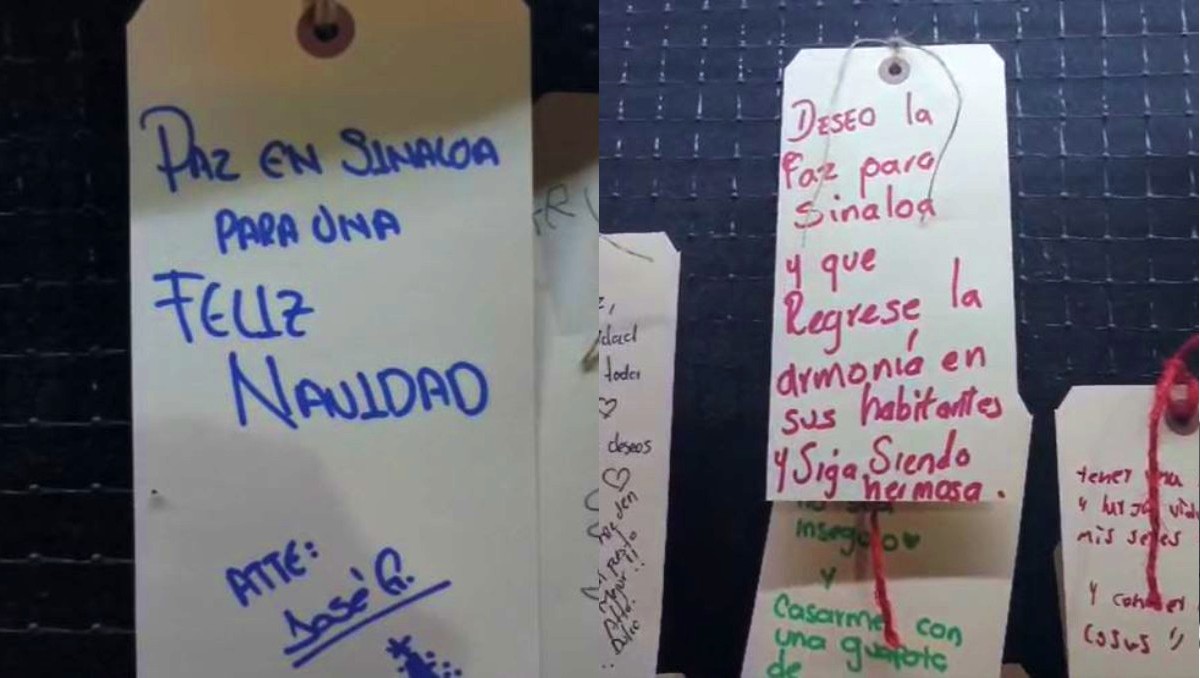 PAZ EN SINALOA
PARA UNA
FELIZ
NAVIDAD
ATTE:
José G.
dad
toda
deseos
DESEO la
Paz para
Sinaloa
y que
Regrese la
armonía en
sus habitantes
y Siga Siendo
hermosa.
inseguro
y
Casarme con
una guapota
de
tener una
y
mis seres
y
cosas